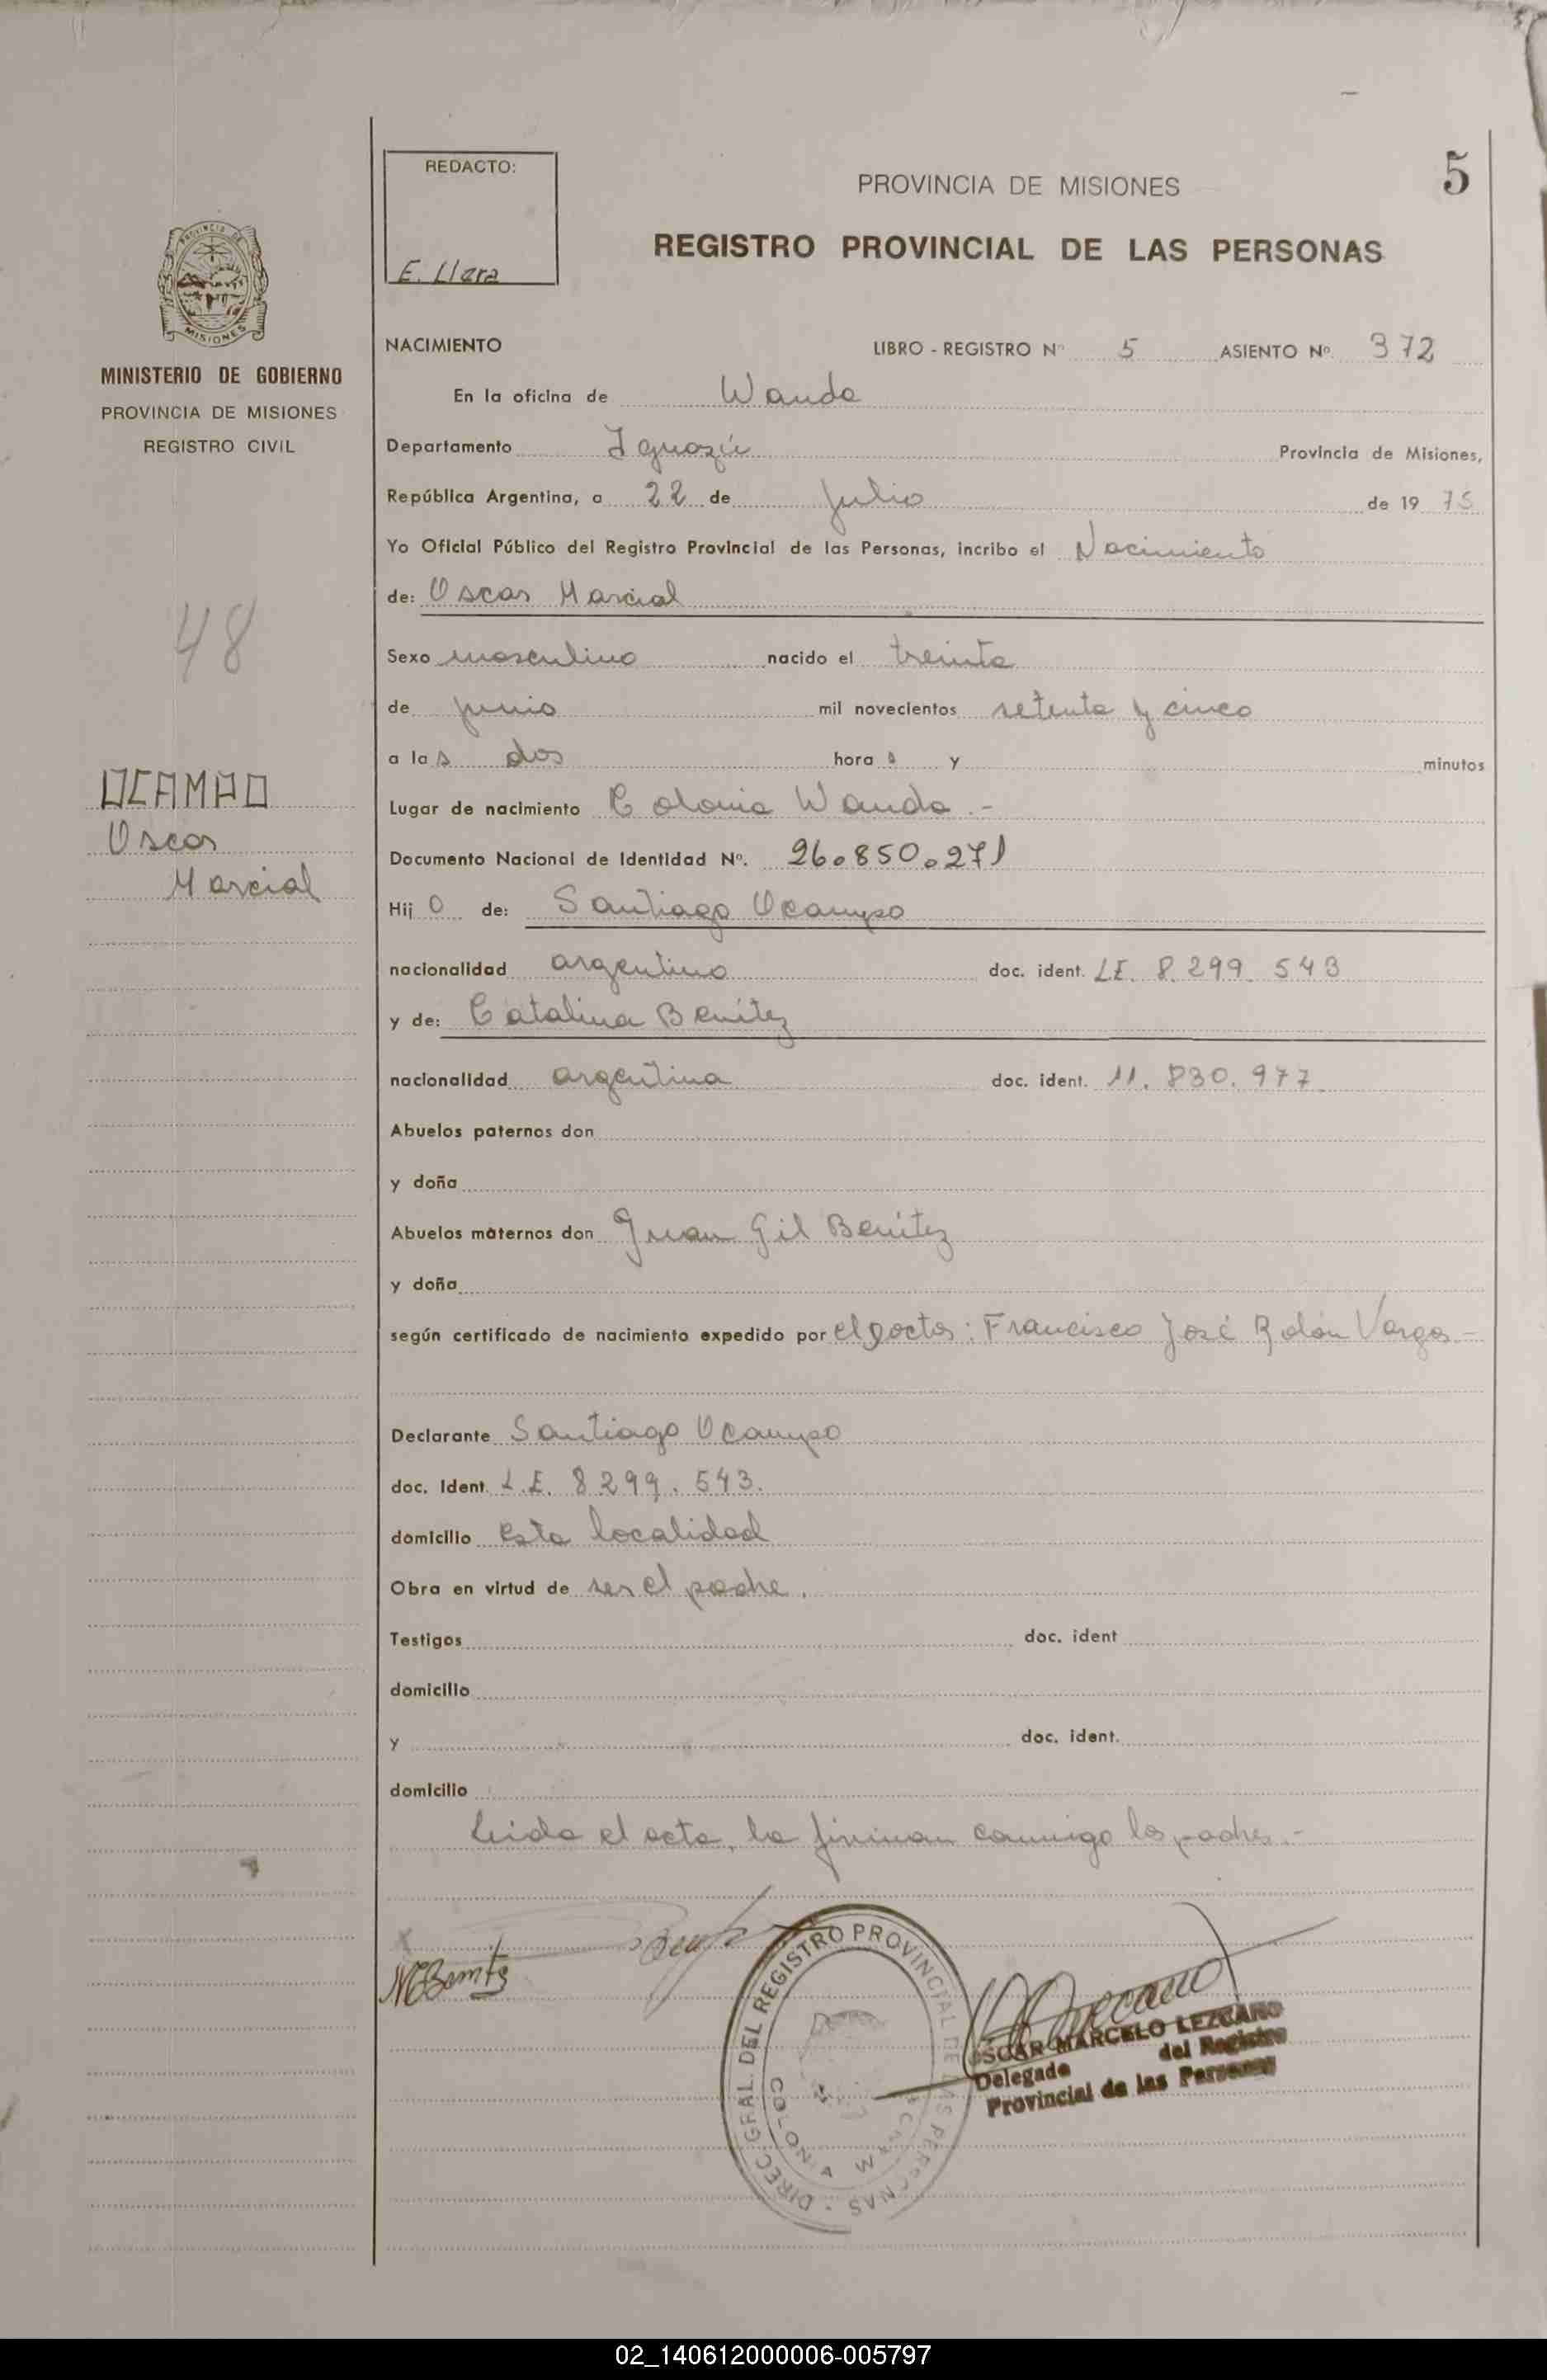 5
REDACTO:
E. Llera
PROVINCIA DE MISIONES
REGISTRO PROVINCIAL DE LAS PERSONAS
PROVINCIA DE
MISIONES
MINISTERIO DE GOBIERNO
PROVINCIA DE MISIONES
REGISTRO CIVIL
48
OCAMPO
Oscar
Marcial
NACIMIENTO LIBRO - REGISTRO Nº 5 ASIENTO Nº 372
En la oficina de Wanda
Departamento Iguazú Provincia de Misiones,
República Argentina, a 22 de Julio de 19 75
Yo Oficial Público del Registro Provincial de las Personas, incribo el Nacimiento
de: Oscar Marcial
Sexo masculino nacido el treinta
de junio mil novecientos setenta y cinco
a las dos hora s y minutos
Lugar de nacimiento Colonia Wanda.-
Documento Nacional de Identidad Nº. 26.850.271
Hij o de: Santiago Ocampo
nacionalidad argentino doc. ident. LE. 8.299.543
y de: Catalina Benítez
nacionalidad argentina doc. ident. 11.830.977
Abuelos paternos don
y doña
Abuelos maternos don Juan Gil Benítez
y doña
según certificado de nacimiento expedido por el Doctor: Francisco José Rolón Vargas.-
Declarante Santiago Ocampo
doc. Ident. L.E. 8299.543.
domicilio esta localidad
Obra en virtud de ser el padre.
Testigos doc. ident
domicilio
y doc. ident.
domicilio
Leida el acta, la firman conmigo los padres.-
DIREC. GRAL. DEL REGISTRO PROVINCIAL DE LAS PERSONAS
COLONIA WANDA
OSCAR MARCELO LEZCANO
Delegado del Registro
Provincial de las Personas
02_140612000006-005797